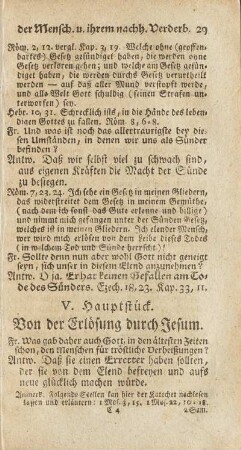 der Mensch. u. ihrem nachh. Verderb. 29
Röm. 2, 12. vergl. Kap. 3, 19. Welche ohne (geoffen-
bartes) Gesetz gesündiget haben, die werden ohne
Gesetz verloren gehen; und welche am Gesetz gesün-
diget haben, die werden durchs Gesetz verurtheilt
werden — auf daß aller Mund verstopft werde,
und alle Welt Gott schuldig (seinen Strafen un-
terworfen) sey.
Hebr. 10, 31. Schrecklich ists, in die Hände des leben-
digen Gottes zu fallen. Röm 8, 6-8.
Fr. Und was ist noch das allertraurigste bey die-
sen Umständen, in denen wir uns als Sünder
befinden?
Antw. Daß wir selbst viel zu schwach sind,
aus eigenen Kräften die Macht der Sünde
zu besiegen.
Röm. 7, 23. 24. Ich sehe ein Gesetz in meinen Gliedern,
das widerstreitet dem Gesetz in meinem Gemüthe,
(nach dem ich sonst das Gute erkenne und billige) und
nimmt mich gefangen unter der Sünden Gesetz,
welches ist in meinen Gliedern. Ich elender Mensch,
wer wird mich erlösen von dem Leibe dieses Todes
(in welchem Tod und Sünde herrscht)!
Fr. Sollte denn nun aber Gott wohl nicht geneigt
seyn, sich unser in diesem Elend anzunehmen?
Antw. O ja. Er hat keinen Gefallen am To-
de des Sünders. Ezech. 18, 23. Kap. 33, 11.
V. Hauptstück.
Von der Erlösung durch Jesum.
Fr. Was gab daher auch Gott, in den ältesten Zeiten
schon, den Menschen für tröstliche Verheißungen?
Antw. Daß sie einen Erretter haben sollten,
der sie von dem Elend befreyen und aufs
neue glücklich machen würde.
Anmerk. Folgende Stellen kan hier der Katechet nachlesen
lassen und erläutern: 1 Mos. 3, 15. 1 Mos. 22, 10-18.
C 4 2 Sam.